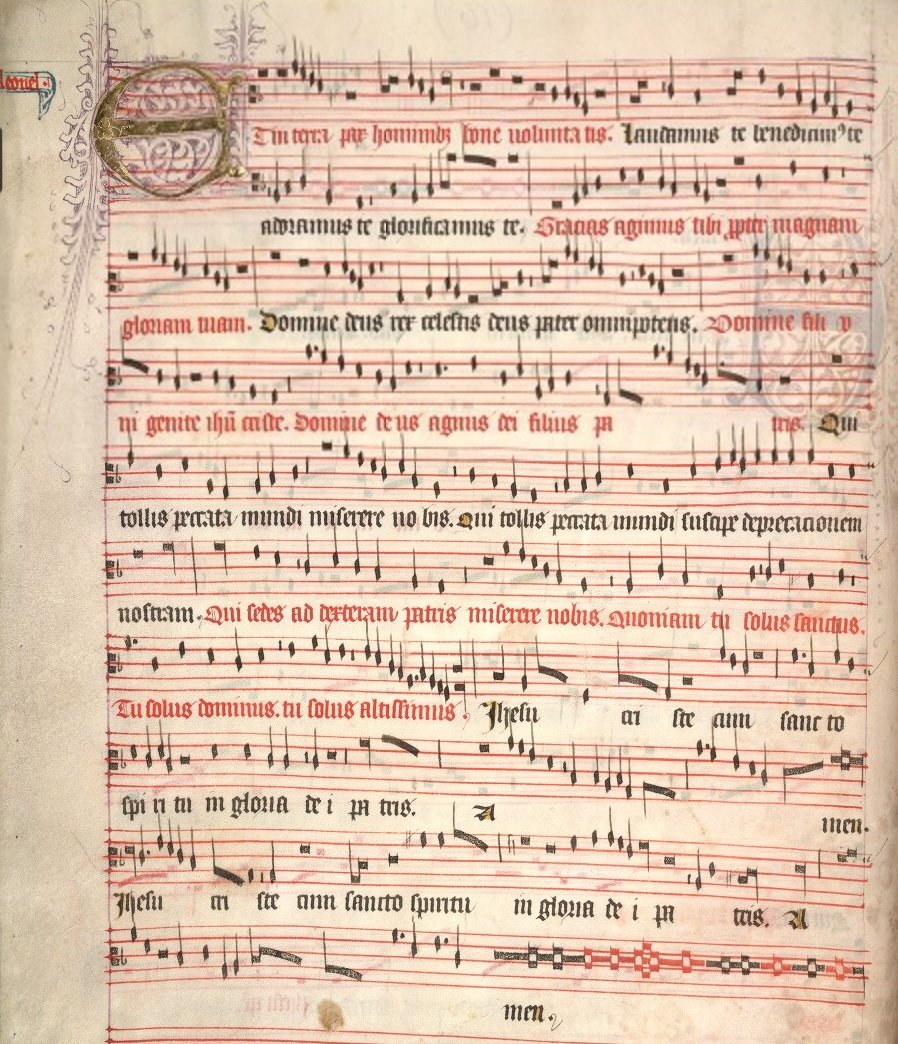 leonel.
Et in terra pax hominibz bone uoluntatis. Laudamus te benediamꝰ te
adoramus te glorificamus te. Gracias agimus tibi ꝓpter magnam
gloriam tuam. Domine deus rex celestis deus pater omnipotens. Domine fili v
ni genite ihū criste. Domine de us agnus dei filius pa tris. Qui
tollis peccata mundi miserere no bis. Qui tollis peccata mundi suscipe deprecacionem
nostram. Qui sedes ad dexteram patris miserere nobis. Quoniam tu solus sanctus.
Tu solus dominus. tu solus altissimus. Jhesu cri ste cum sanc to
spi ri tu in gloria de i pa tris. A men.
Jhesu cri ste cum sancto spiritu in gloria de i pa tris. A
men.